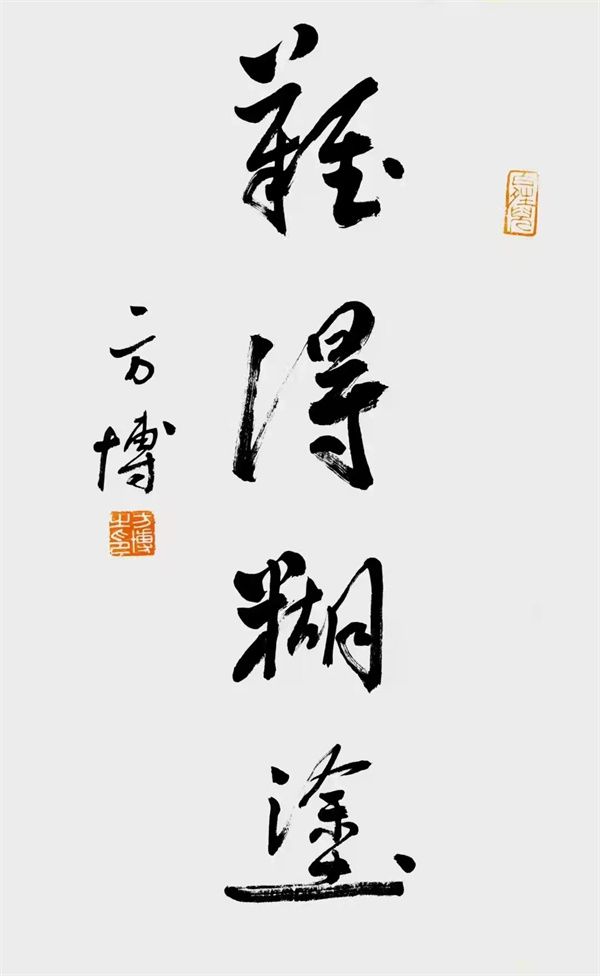 難得糊塗
方博
方博之印